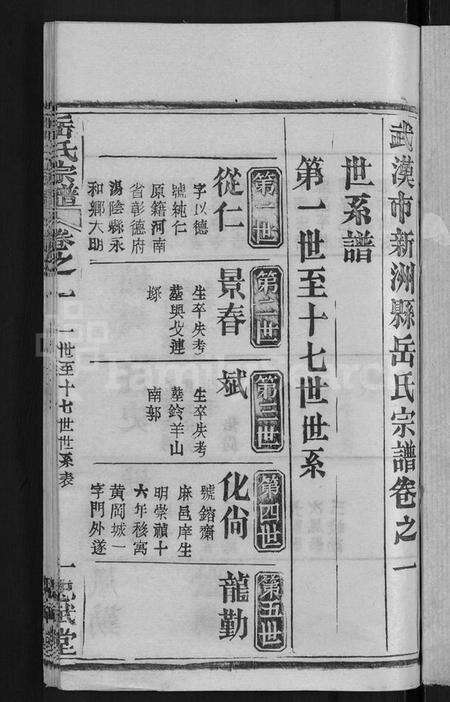 武漢市新洲縣岳氏宗譜卷之一
世系譜
第一世至十七世世系
第一世
從仁
字以德
號純仁
原籍河南
省彰德府
湯陰縣永
和鄉大明
第二世
景春
生卒失考
塟與父連
塚
第三世
斌
生卒失考
塟鈴羊山
南郭
第四世
化尙
號鎔齋
麻邑庠生
明崇禎十
六年移寓
黃岡城一
字門外遂
第五世
龍勤
岳氏宗譜
卷之一
一世至十七世世系表
一